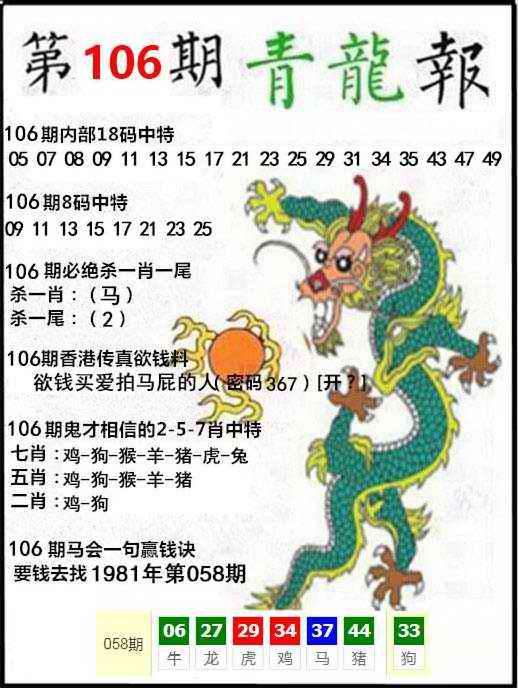 第106期青龍報
106期内部18码中特
05 07 08 09 11 13 15 17 21 23 25 29 31 34 35 43 47 49
106期8码中特
09 11 13 15 17 21 23 25
106期必绝杀一肖一尾
杀一肖:(马)
杀一尾:(2)
106期香港传真欲钱料
欲钱买爱拍马屁的人(密码367)[开?]
106期鬼才相信的2-5-7肖中特
七肖:鸡-狗-猴-羊-猪-虎-兔
五肖:鸡-狗-猴-羊-猪
二肖:鸡-狗
106期马会一句赢钱诀
要钱去找1981年第058期
058期 06 27 29 34 37 44 33
牛 龙 虎 鸡 马 猪 狗